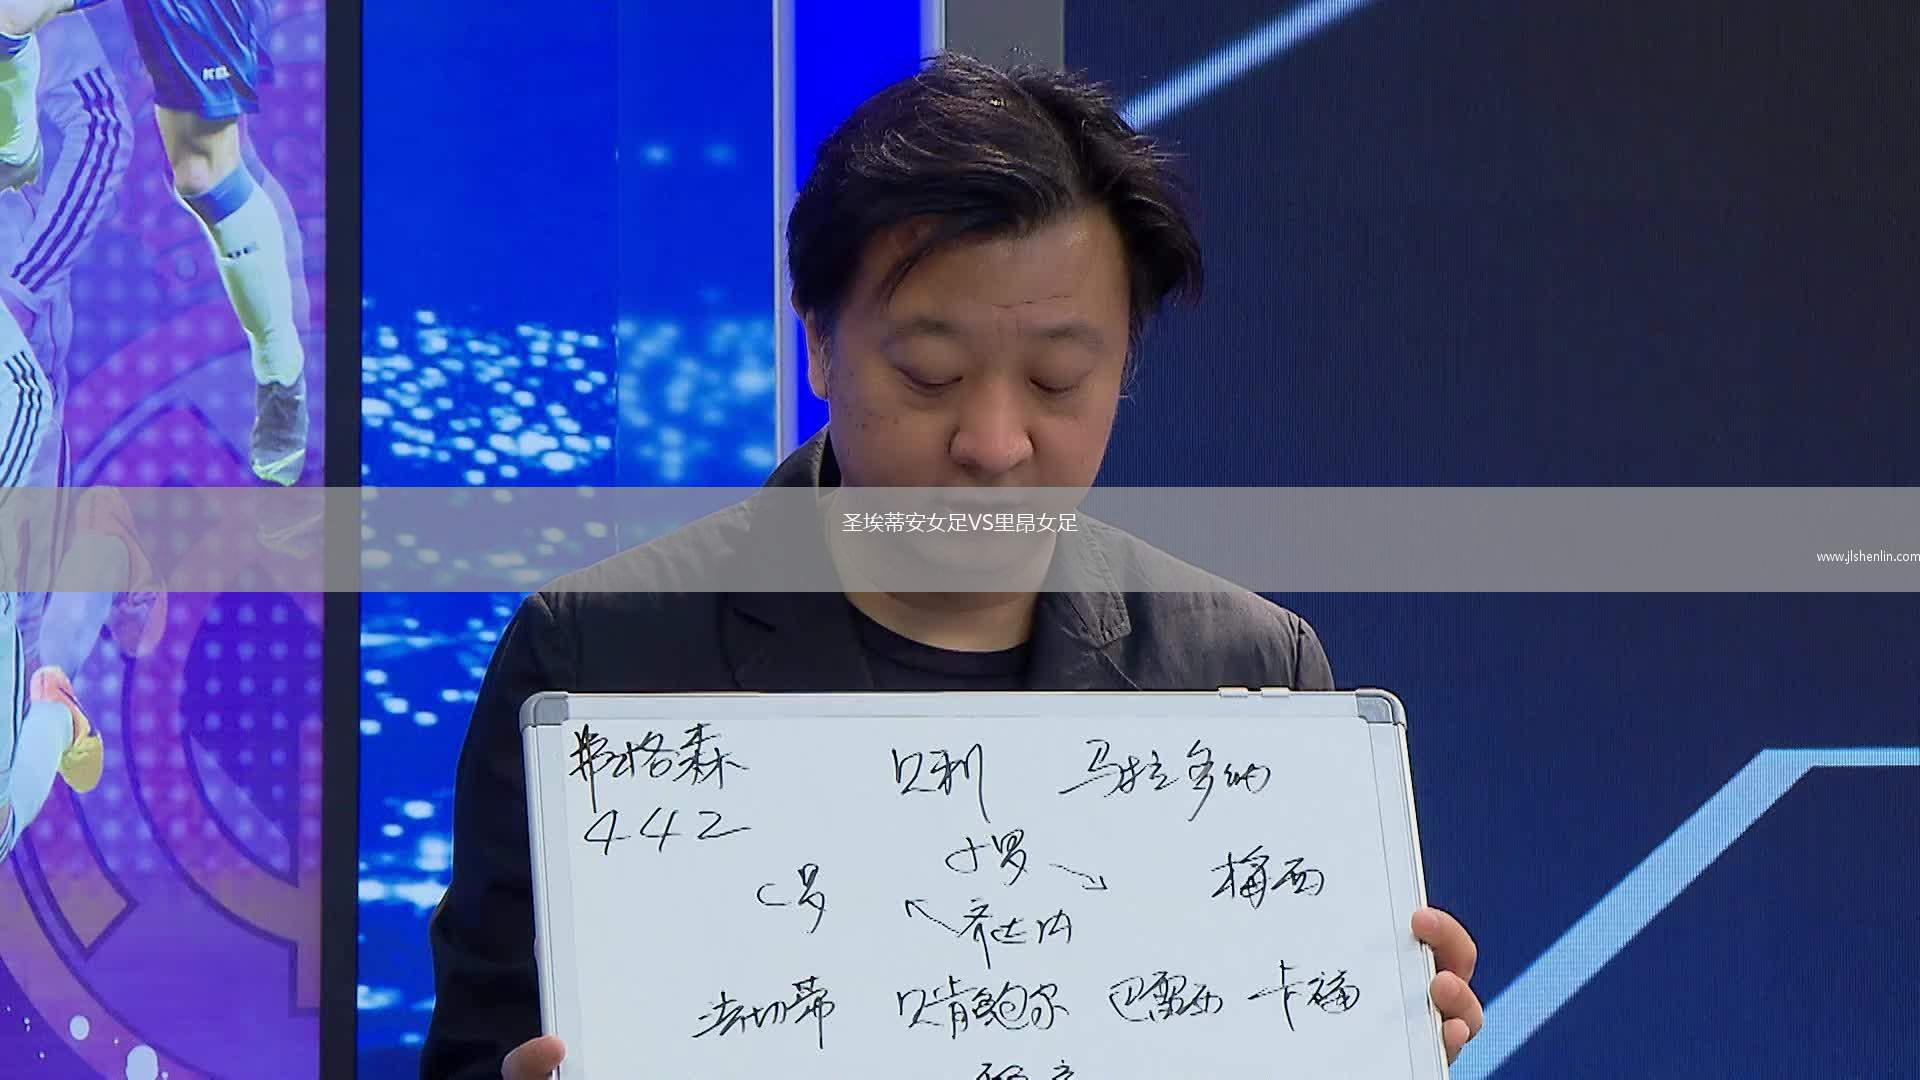 圣埃蒂安女足VS里昂女足
www.jlshenlin.com
弗格森 贝利 马拉多纳
442
小罗
C罗 梅西
齐达内
法切蒂 贝肯鲍尔 巴雷西 卡福